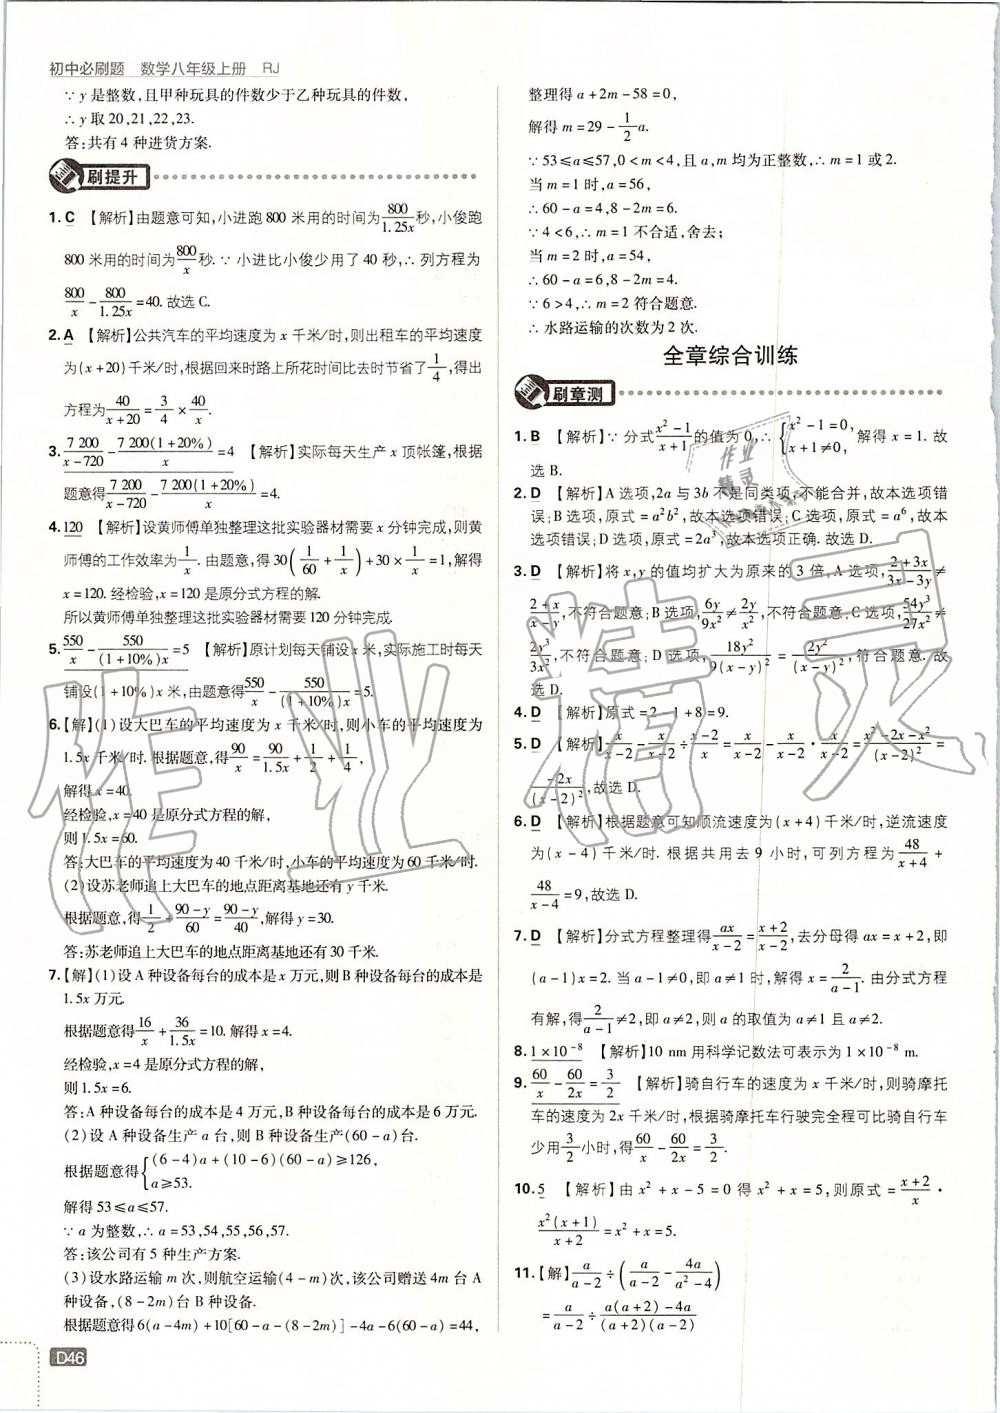 初中必刷题 数学八年级上册 RJ
∵ y 是整数,且甲种玩具的件数少于乙种玩具的件数,
∴ y 取 20,21,22,23.
答:共有 4 种进货方案.
刷提升
1. C 【解析】由题意可知,小进跑 800 米用的时间为 800/1.25x 秒,小俊跑
800 米用的时间为 800/x 秒. ∵ 小进比小俊少用了 40 秒,∴ 列方程为
800/x - 800/1.25x = 40. 故选 C.
2. A 【解析】公共汽车的平均速度为 x 千米/时,则出租车的平均速度
为(x+20)千米/时,根据回来时路上所花时间比去时节省了 1/4,得出
方程为 40/(x+20) = 3/4 × 40/x.
3. 7 200/(x-720) - 7 200(1+20%)/x = 4 【解析】实际每天生产 x 顶帐篷,根据
题意得 7 200/(x-720) - 7 200(1+20%)/x = 4.
4. 120 【解析】设黄师傅单独整理这批实验器材需要 x 分钟完成,则黄
师傅的工作效率为 1/x. 由题意,得 30(1/60 + 1/x) + 30 × 1/x = 1,解得
x = 120. 经检验,x = 120 是原分式方程的解.
所以黄师傅单独整理这批实验器材需要 120 分钟完成.
5. 550/x - 550/(1+10%)x = 5 【解析】原计划每天铺设 x 米,实际施工时每天
铺设(1+10%)x 米,由题意得 550/x - 550/(1+10%)x = 5.
6.【解】(1)设大巴车的平均速度为 x 千米/时,则小车的平均速度为
1.5x 千米/时. 根据题意,得 90/x = 90/1.5x + 1/2 + 1/4,
解得 x = 40.
经检验,x = 40 是原分式方程的解,
则 1.5x = 60.
答:大巴车的平均速度为 40 千米/时,小车的平均速度为 60 千米/时.
(2)设苏老师追上大巴车的地点距离基地还有 y 千米.
根据题意,得 1/2 + (90-y)/60 = (90-y)/40,解得 y = 30.
答:苏老师追上大巴车的地点距离基地还有 30 千米.
7.【解】(1)设 A 种设备每台的成本是 x 万元,则 B 种设备每台的成本是
1.5x 万元.
根据题意得 16/x + 36/1.5x = 10. 解得 x = 4.
经检验,x = 4 是原分式方程的解,
则 1.5x = 6.
答:A 种设备每台的成本是 4 万元,B 种设备每台的成本是 6 万元.
(2)设 A 种设备生产 a 台,则 B 种设备生产(60-a)台.
根据题意得 { (6-4)a+(10-6)(60-a)≥126, a≥53.
解得 53≤a≤57.
∵ a 为整数,∴ a = 53,54,55,56,57.
答:该公司有 5 种生产方案.
(3)设水路运输 m 次,则航空运输(4-m)次,该公司赠送 4m 台 A
种设备,(8-2m)台 B 种设备.
根据题意得 6(a-4m)+10[60-a-(8-2m)]-4a-6(60-a)=44,
D46
整理得 a+2m-58=0,
解得 m = 29 - 1/2 a.
∵ 53≤a≤57,0<m<4,且 a,m 均为正整数,∴ m = 1 或 2.
当 m = 1 时,a = 56,
∴ 60-a = 4,8-2m = 6.
∵ 4<6,∴ m = 1 不合适,舍去;
当 m = 2 时,a = 54,
∴ 60-a = 6,8-2m = 4.
∵ 6>4,∴ m = 2 符合题意.
∴ 水路运输的次数为 2 次.
全章综合训练
刷章测
1. B 【解析】∵ 分式 (x²-1)/(x+1) 的值为 0,∴ { x²-1=0, x+1≠0, 解得 x = 1. 故
选 B.
2. D 【解析】A 选项,2a 与 3b 不是同类项,不能合并,故本选项错
误;B 选项,原式 = a²b²,故本选项错误;C 选项,原式 = a⁶,故本选
项错误;D 选项,原式 = 2a³,故本选项正确. 故选 D.
3. D 【解析】将 x,y 的值均扩大为原来的 3 倍,A 选项,(2+3x)/(3x-3y) ≠
(2+x)/(x-y),不符合题意;B 选项,6y/9x² ≠ 2y/x²,不符合题意;C 选项,54y³/27x² ≠
2y³/3x²,不符合题意;D 选项,18y²/9(x-y)² = 2y²/(x-y)²,符合题意. 故
选 D.
4. D 【解析】原式 = 2-1+8 = 9.
5. D 【解析】x/(x-2) - x/(x-2) ÷ (x-2)/x = x/(x-2) - x/(x-2) · x/(x-2) = (x²-2x-x²)/(x-2)² =
-2x/(x-2)². 故选 D.
6. D 【解析】根据题意可知顺流速度为(x+4)千米/时,逆流速度
为(x-4)千米/时. 根据共用去 9 小时,可列方程为 48/(x+4) +
48/(x-4) = 9,故选 D.
7. D 【解析】分式方程整理得 ax/(x-2) = (x+2)/(x-2),去分母得 ax = x+2,即
(a-1)x = 2. 当 a-1≠0,即 a≠1 时,解得 x = 2/(a-1). 由分式方程
有解,得 2/(a-1) ≠2,即 a≠2,则 a 的取值为 a≠1 且 a≠2.
8. 1×10⁻⁸ 【解析】10 nm 用科学记数法可表示为 1×10⁻⁸ m.
9. 60/x - 60/2x = 3/2 【解析】骑自行车的速度为 x 千米/时,则骑摩托
车的速度为 2x 千米/时,根据骑摩托车行驶完全程可比骑自行车
少用 3/2 小时,得 60/x - 60/2x = 3/2.
10. 5 【解析】由 x²+x-5=0 得 x²+x=5,则原式 = (x+2)/x ·
x²(x+1)/(x+2) = x²+x = 5.
11.【解】a/(a-2) ÷ (a/(a-2) - 4a/(a²-4))
= a/(a-2) ÷ (a(a+2)-4a)/((a+2)(a-2))
作业精灵
作业
精灵